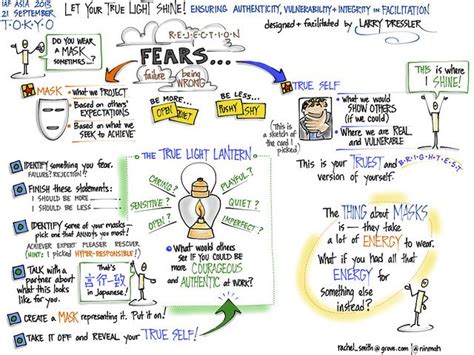 IAF ASIA 2013
21 SEPTEMBER
TOKYO
LET YOUR TRUE LIGHT SHINE! ENSURING AUTHENTICITY, VULNERABILITY + INTEGRITY in FACILITATION
designed + facilitated by LARRY DRESSLER
DO YOU WEAR
A MASK
SOMETIMES...?
REJECTION
FEARS...
failure
being
WRONG
MASK
What we PROJECT
Based on others'
EXPECTATIONS
Based on what we
SEEK to ACHIEVE
BE MORE...
OPEN
QUIET
BE LESS...
PUSHY
SHY
TRUE SELF
(This is
a sketch of
the card I
picked)
What we would
SHOW OTHERS
(if we could)
Where we are REAL
and VULNERABLE
THIS is
where I
SHINE!
This is your TRUEST and BRIGHTEST
version of yourself.
IDENTIFY something you fear.
FAILURE? REJECTION?
FINISH these statements:
I SHOULD BE MORE
I SHOULD BE LESS
IDENTIFY some of your masks
pick one that ANNOYS you most!
ACHIEVER EXPERT PLEASER RESCUER
(HINT: I picked HYPER-RESPONSIBLE!)
TALK with a
partner about
what this looks
like for you.
That's
言行一致
in Japanese!
CREATE a MASK representing it. Put it on!
TAKE IT OFF and REVEAL your TRUE SELF!
THE TRUE LIGHT LANTERN
CARING?
PLAYFUL?
SENSITIVE?
QUIET?
OPEN?
IMPERFECT?
What would others
see IF YOU could
be more
COURAGEOUS
and
AUTHENTIC at WORK?
The THING about MASKS
is — they take
a lot of ENERGY to wear.
What if you had all
that ENERGY for
something else
instead?
rachel_smith@grove.com | @ninmah